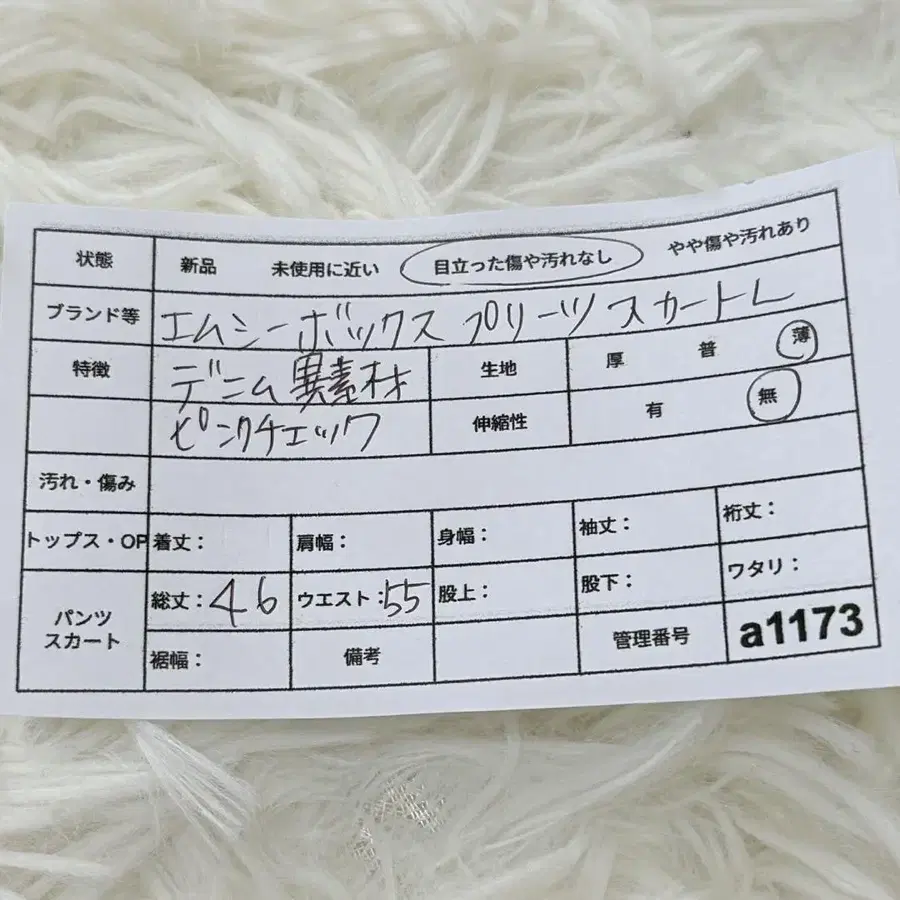 状態 新品 未使用に近い 目立った傷や汚れなし やや傷や汚れあり
ブランド等 エムシーボックス プリーツスカートL
特徴 デニム異素材 生地 厚 普 薄
ピンクチェック 伸縮性 有 無
汚れ・傷み
トップス・OP 着丈: 肩幅: 身幅: 袖丈: 裄丈:
パンツ スカート 総丈:46 ウエスト:55 股上: 股下: ワタリ:
裾幅: 備考 管理番号 a1173